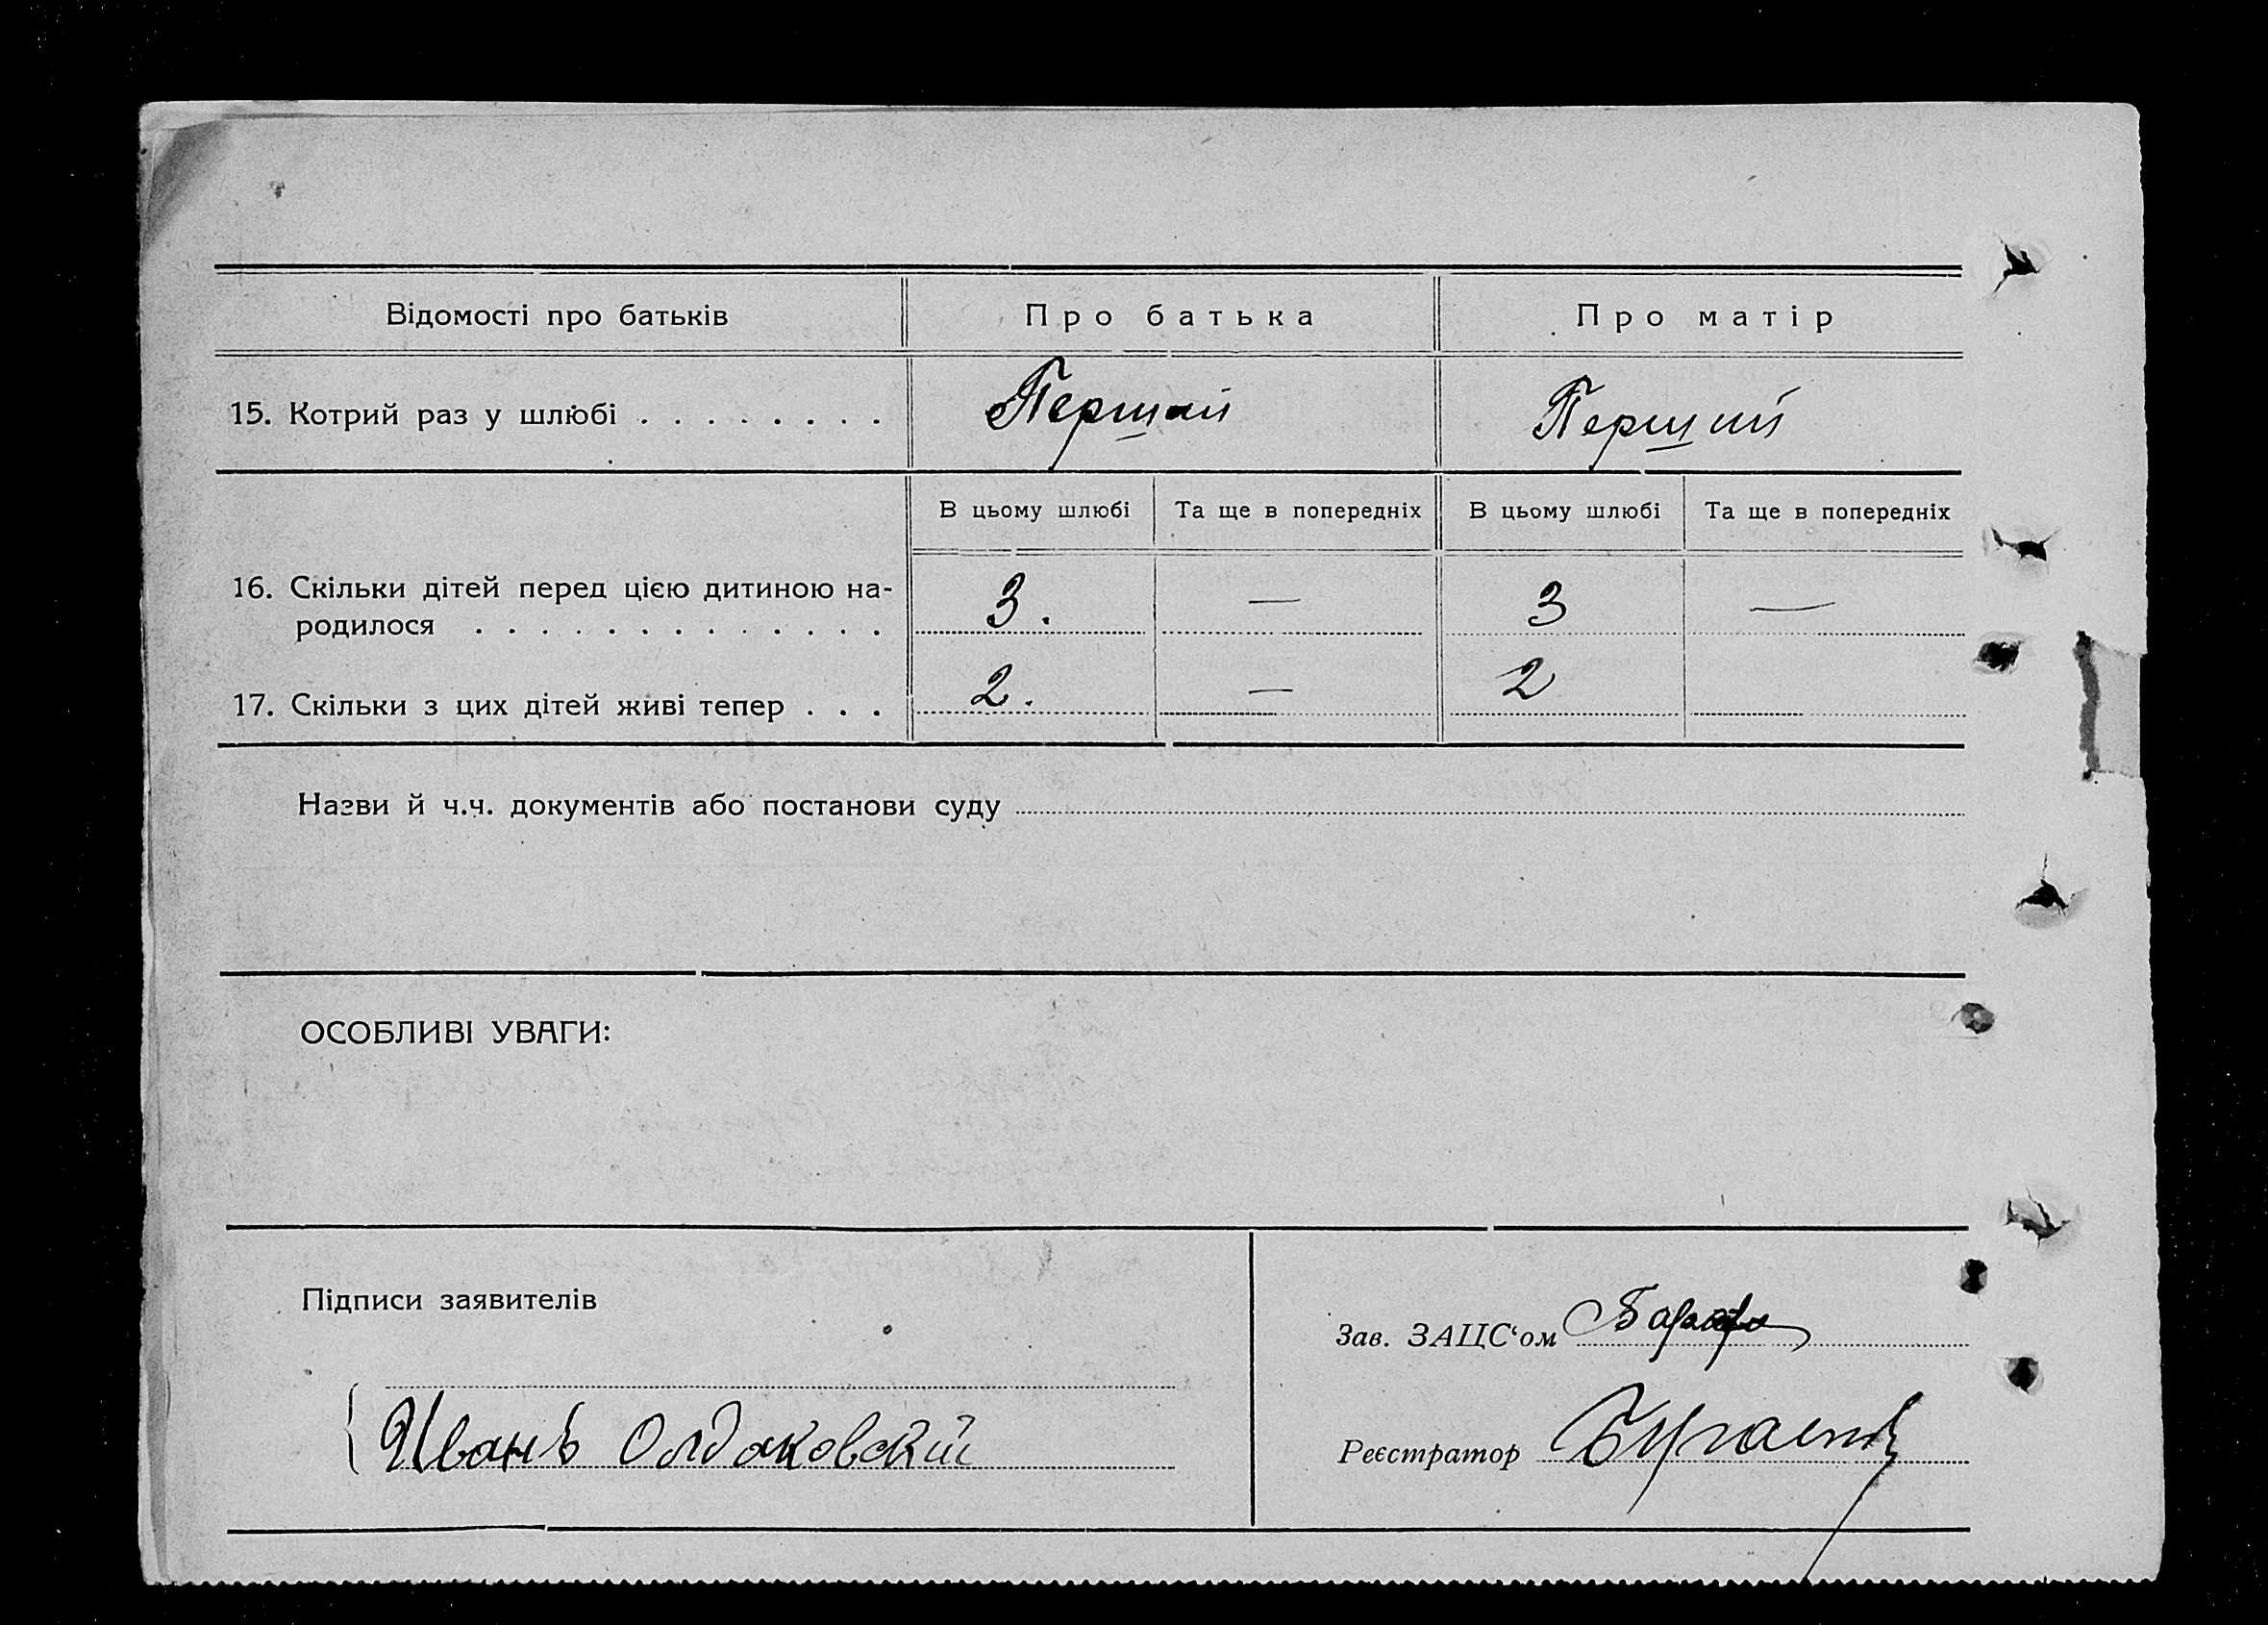 Відомості про батьків
Про батька
Про матір
15. Котрий раз у шлюбі . . . . . . . .
Перший
Перший
В цьому шлюбі
Та ще в попередніх
В цьому шлюбі
Та ще в попередніх
16. Скільки дітей перед цією дитиною на-
родилося . . . . . . . . . . . . .
3.
—
3
—
17. Скільки з цих дітей живі тепер . . .
2.
—
2
Назви й ч.ч. документів або постанови суду
ОСОБЛИВІ УВАГИ:
Підписи заявителів
Иванъ Олдаковский
Зав. ЗАЦС‘ом
Реєстратор